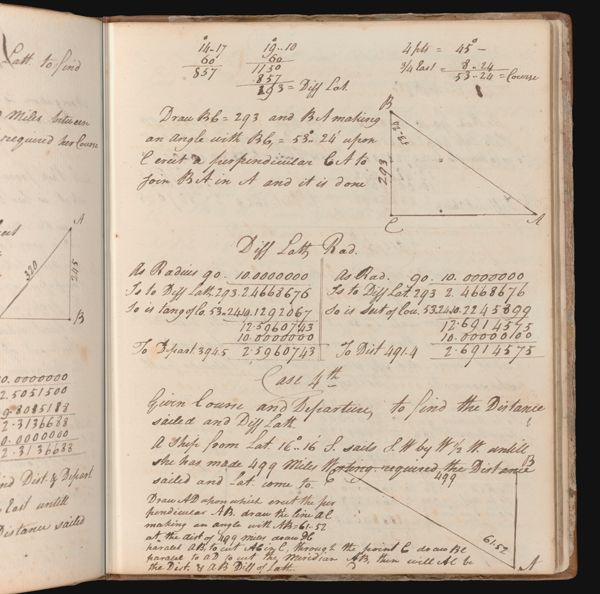 Latt. to find
Miles between
required her Course
A
320
245
B
0.0000000
2.5051500
9.8085188
2.3136688
0.0000000
2.3136688
Dist. & Depart
East untill
Distance sailed
14-17
60
857
19..10
60
1150
857
293 = Diff Lat.
4 pts = 45° -
3/4 East = 8..24
53..24 = Course
Draw BC = 293 and BA making
an angle with BC = 53°..24' upon
C erect a perpendicular CA to
Join BA in A and it is done
B
53..24
293
C
A
Diff Latt, Rad.
As Radius 90.. 10.0000000
Is to Diff Latt. 293. 2.4668676
So is tang of Co. 53..24 10.1292067
12.5960743
10.0000000
To Depart. 394.5 2.5960743
As Rad. 90. 10.0000000
Is to Diff Lat. 293 2.4668676
So is Sect of Cou. 53..24 10.2245899
12.6914575
10.0000000
To Dist 491.4 2.6914575
Case 4th
Given Course and Departure, to find the Distance
sailed and Diff Latt.
A Ship from Lat. 16°..16 S. sails S.W by W 1/2 W. untill
she has made 499 Miles required the Distance
sailed and Lat. come to.
C
499
B
61..52
A
Draw AD upon which erect the per
pendicular AB. draw the line AC
making an angle with AB = 61..52
at the dist of 499 miles draw DC
paralel AB, to cut AC in C, through the point C draw BC
paralel to AD to cut the Meridian AB, then will AC be
the Dist. & AB Diff of Latt.